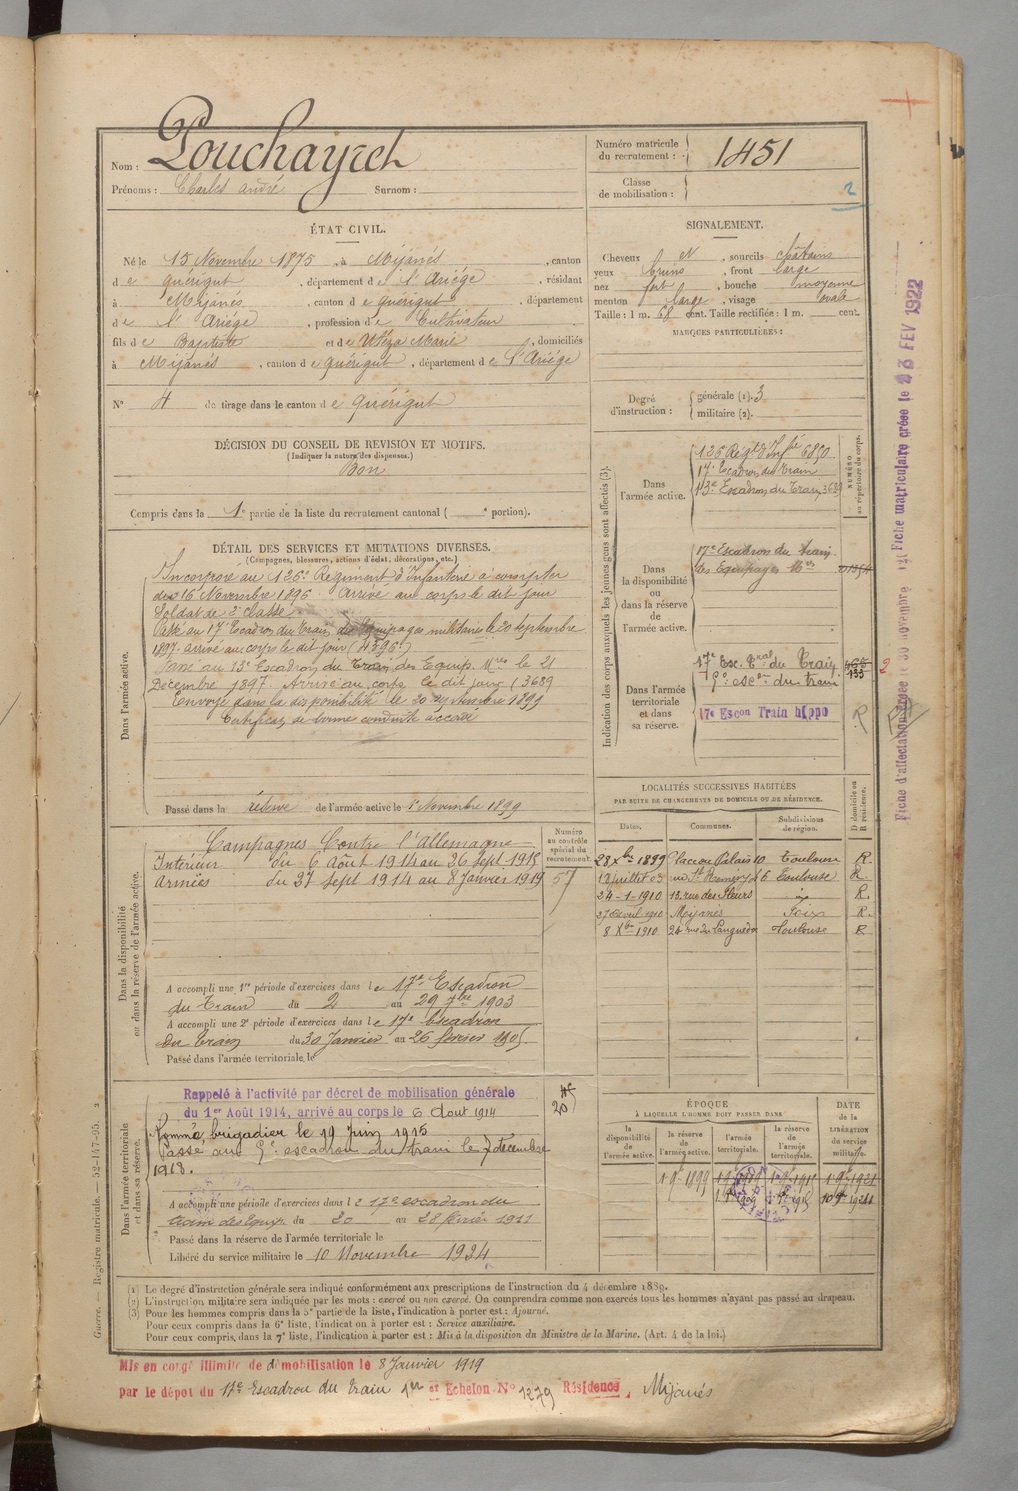 Nom : Pouchayret
Prénoms : Charles André Surnom :
Numéro matricule
du recrutement : 1451
Classe
de mobilisation :
2
ÉTAT CIVIL.
Né le 15 Novembre 1875, à Mijanés, canton
d e quérigut, département d e l'Ariége, résidant
à Mijanés, canton d e quérigut, département
d e l'Ariége, profession d e Cultivateur
fils d e Baptiste et d e Utéza Marie, domiciliés
à Mijanés, canton d e quérigut, département d e l'Ariége
N° 4 de tirage dans le canton d e quérigut
SIGNALEMENT.
Cheveux et, sourcils châtains
yeux bruns, front large
nez fort, bouche moyenne
menton large, visage ovale
Taille : 1 m. 68 cent. Taille rectifiée : 1 m. cent.
MARQUES PARTICULIÈRES :
Degré
d'instruction :
générale (1). 3
militaire (2).
DÉCISION DU CONSEIL DE REVISION ET MOTIFS.
(Indiquer la nature des dispenses.)
Bon
Compris dans la 1e partie de la liste du recrutement cantonal ( e portion).
DÉTAIL DES SERVICES ET MUTATIONS DIVERSES.
(Campagnes, blessures, actions d'éclat, décorations, etc.)
Dans l'armée active.
Incorporé au 126e Régiment d'Infanterie à compter
du 16 Novembre 1896. Arrivé au corps le dit jour
Soldat de 2e classe.
Passé au 17e Escadron du Train des Equipages militaires le 20 septembre
1897. arrivé au corps le dit jour (4396)
Passé au 13e Escadron du Train des Equip. Mres le 21
Décembre 1897. Arrivé au corps le dit jour (3689
Envoyé dans la disponibilité le 20 septembre 1899
Certificat de bonne conduite accordé
Passé dans la réserve de l'armée active le 1er Novembre 1899
Indication des corps auxquels les jeunes gens sont affectés (3).
NUMÉRO
au répertoire du corps.
Dans
l'armée active.
126 Régt d'Infie 6850
17e Escadron du Train
13e Escadron du Train 3689
Dans
la disponibilité
ou
dans la réserve
de
l'armée active.
17e Escadron du train
des Equipages Mres
Dans l'armée
territoriale
et dans
sa réserve.
17e Esc. Tral du Train 465
133
2
9e escon du train
17e Escon Train hippo
R
Dans la disponibilité
ou dans la réserve de l'armée active.
Numéro
au contrôle
spécial du
recrutement.
57
Campagnes Contre l'Allemagne
Intérieur du 6 Août 1914 au 26 Sept 1915
Armées du 27 Sept 1914 au 8 Janvier 1919
A accompli une 1re période d'exercices dans l e 17e Escadron
du Train du 2 au 29 7bre 1903
A accompli une 2e période d'exercices dans l e 17e Escadron
du Train du 30 Janvier au 26 février 1905
Passé dans l'armée territoriale le
LOCALITÉS SUCCESSIVES HABITÉES
PAR SUITE DE CHANGEMENTS DE DOMICILE OU DE RÉSIDENCE.
D domicile ou
R résidence.
Dates. Communes. Subdivisions
de région.
28 Xbre 1899 Place du Palais 10 Toulouse R.
12 juillet 03 rue St Remezy 26 Toulouse R.
24-1-1910 13, rue des fleurs R.
27 avril 1910 Mijanés Foix R.
8 Xbre 1910 24 rue du Languedoc Toulouse R
Dans l'armée territoriale
et dans sa réserve.
Rappelé à l'activité par décret de mobilisation générale
du 1er Août 1914, arrivé au corps le 6 Aout 1914
Nommé, brigadier le 19 Juin 1915
Passé au 9e escadron du train le 7 décembre
1918.
A accompli une période d'exercices dans l e 17e escadron du
train des Equip. du 20 au 28 février 1911
Passé dans la réserve de l'armée territoriale le
Libéré du service militaire le 10 Novembre 1924
ÉPOQUE
À LAQUELLE L'HOMME DOIT PASSER DANS
la
disponibilité
de
l'armée active.
la réserve
de
l'armée active.
l'armée
territoriale.
la réserve
de
l'armée
territoriale.
DATE
de la
LIBÉRATION
du service
militaire.
1 9bre 1899 1 9bre 1909 1 9bre 1915 1 9bre 1921
(1) Le degré d'instruction générale sera indiqué conformément aux prescriptions de l'instruction du 4 décembre 1889.
(2) L'instruction militaire sera indiquée par les mots : exercé ou non exercé. On comprendra comme non exercés tous les hommes n'ayant pas passé au drapeau.
(3) Pour les hommes compris dans la 5e partie de la liste, l'indication à porter est : Ajourné.
Pour ceux compris dans la 6e liste, l'indication à porter est : Service auxiliaire.
Pour ceux compris dans la 7e liste, l'indication à porter est : Mis à la disposition du Ministre de la Marine. (Art. 4 de la loi.)
Mis en congé illimité de démobilisation le 8 Janvier 1919
par le dépôt du 17e Escadron du train 1er et Echelon No 1279 Résidence, Mijanés
Guerre. — Registre matricule. — 52-147-95. 2
Fiche matriculaire créée le 23 FEV 1922